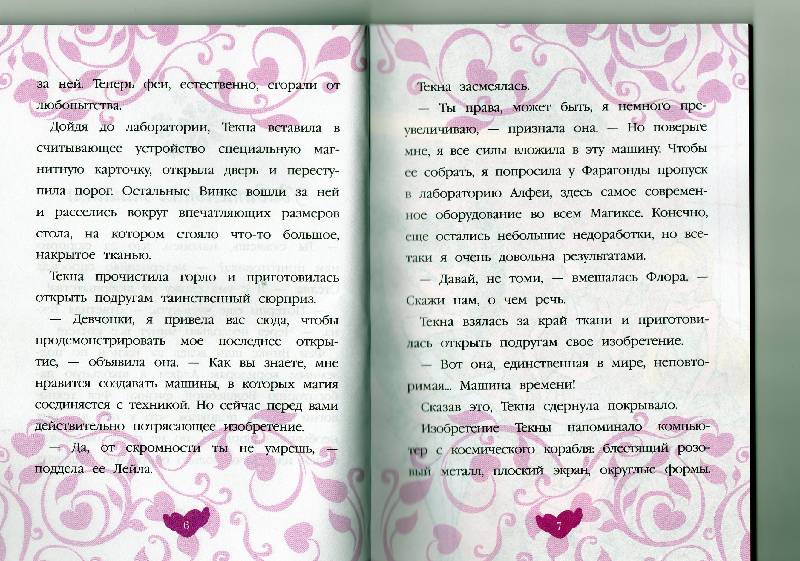 за ней. Теперь феи, естественно, сгорали от
любопытства.
Дойдя до лаборатории, Текна вставила в
считывающее устройство специальную маг-
нитную карточку, открыла дверь и пересту-
пила порог. Остальные Винкс вошли за ней
и расселись вокруг впечатляющих размеров
стола, на котором стояло что-то большое,
накрытое тканью.
Текна прочистила горло и приготовилась
открыть подругам таинственный сюрприз.
— Девчонки, я привела вас сюда, чтобы
продемонстрировать мое последнее откры-
тие, — объявила она. — Как вы знаете, мне
нравится создавать машины, в которых магия
соединяется с техникой. Но сейчас перед вами
действительно потрясающее изобретение.
— Да, от скромности ты не умрешь, —
поддела ее Лейла.
6
Текна засмеялась.
— Ты права, может быть, я немного пре-
увеличиваю, — признала она. — Но поверьте
мне, я все силы вложила в эту машину. Чтобы
ее собрать, я попросила у Фарагонды пропуск
в лабораторию Алфеи, здесь самое современ-
ное оборудование во всем Магиксе. Конечно,
еще остались небольшие недоработки, но все-
таки я очень довольна результатами.
— Давай, не томи, — вмешалась Флора. —
Скажи нам, о чем речь.
Текна взялась за край ткани и приготови-
лась открыть подругам свое изобретение.
— Вот она, единственная в мире, неповто-
римая... Машина времени!
Сказав это, Текна сдернула покрывало.
Изобретение Текны напоминало компью-
тер с космического корабля: блестящий розо-
вый металл, плоский экран, округлые формы.
7